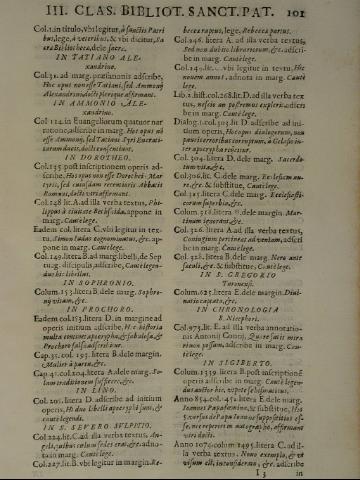 III. CLAS. BIBLIOT. SANCT. PAT. 101
Col. 1. in titulo, vbi legitur, à sanctis Patri
bus, lege, à veteribus. & vbi dicitur, Sa
cra Bibliotheca, dele sacra.
IN TATIANO ALE-
xandrino.
Col. 31. ad marg. præfationis adscribe,
Hoc opus non esse Tatiani, sed Ammonij
Alexandrini docti plerique affirmant.
IN AMMONIO ALE-
xandrino.
Col. 124. in Euangeliorum quatuor nar
ratione, adscribe in marg. Hoc opus nō
esse Ammonij, sed Tatiani Syri
IN DOROTHEO.
Col. 135. post inscriptionem operis ad-
scribe, Hoc opus non esse Dorothei Mar
tyris, sed cuiusdam recentioris
Col. 148. lit. A. ad illa verba textus, Phi-
lippus è ciuitate Bethsaida, appone in
marg. Caute lege.
Eadem col. litera C. vbi legitur in tex-
tu, Simon Iudas cognominatus, &c. ap
pone in marg. Cautè lege.
Col. 149. litera B. ad marg. libelli, de Sep
tuag. discipulis adscribe, Cautè legen-
dus hic libellus.
IN SOPHRONIO.
Colum. 153. litera B. dele marg. Sophro-
nij
IN PROCHORO.
Eadem col. 153. litera D. in margine ad
operis initium adscribe, Hæc historia
multa continet apocrypha, & fabulosa, &
Prochoro falsò adscribitur.
Cap. 35. col. 195. litera B. dele margin.
Mulier à partu, &c.
Cap. 41. col. 204. litera A. dele marg. So-
lam traditionem sufficere, &c.
IN LINO.
Col. 201. litera D. adscribe ad initium
operis, Hi duo libelli apocryphi sunt, &
cautè legendi.
IN S. SEVERO SVLPITIO.
Col. 224. lit. C. ad illa verba textus, An-
gelis, quibus cœlum sedes erat, &c. adno-
ta in marg. Cautè lege.
Col. 227. lit. B. vbi legitur in margin. Re-
becca raptus, lege, Rebecca partus.
Col. 246. litera A. ad illa verba textus,
Sed non dubito librariorum, &c. adscri-
be in marg. Cautè lege.
Col. 249. lit. vbi legitur in textu, Hoc
nouem annos, adnota in marg. Cautè
lege.
Lib. 2. hist. col. 268. lit. D. ad illa verba tex
tus, nescio an possemus expleri, adscri
be in marg. Cautè lege.
Dialog. 1. col. 303. lit. D. adscribe ad ini-
tium operis, Hoc opus dialogorum, non
paucis erroribus corruptum, à Gelasio in-
ter apocrypha reijcitur.
Col. 304. litera D. dele marg. Sacerdo-
tum vita, &c.
Col. 306. lit. C. dele marg. Ecclesiam au-
re, &c. & substitue, Cautè lege.
Col. 313. litera C. dele marg. Ecclesiasti-
corum superbia, &c.
Colum. 318. litera B. dele margin. Mar-
tinum ignorat, &c.
Col. 326. litera A. ad illa verba textus,
Coniugium pertineat ad veniam, adscri
be in marg. Cautè lege.
Col. 328. litera B. dele marg. Nero ante
sæculi, &c. & substitue, Cautè lege.
IN S. GREGORIO
Turonensi.
Colum. 625. litera E. dele margin. Diui-
natio captata, &c.
IN CHRONOLOGIA
S. Nicephori.
Col. 973. lit. E. ad illa verba annotatio-
nis Antonij Contij, adscribe in marg. Cau-
tè lege.
IN SIGIBERTO.
Colum. 1359. litera B. post inscriptionē
operis adscribe in marg. Cautè legen-
dus auctor hic, vtpote schismaticus.
Anno 854. col. 1451. litera E. dele marg.
Ioannes Papa femina, & substitue,
Anno 1076. colum. 1495. litera C. ad il-
la verba textus. Nouo exemplo, &
I 3 in